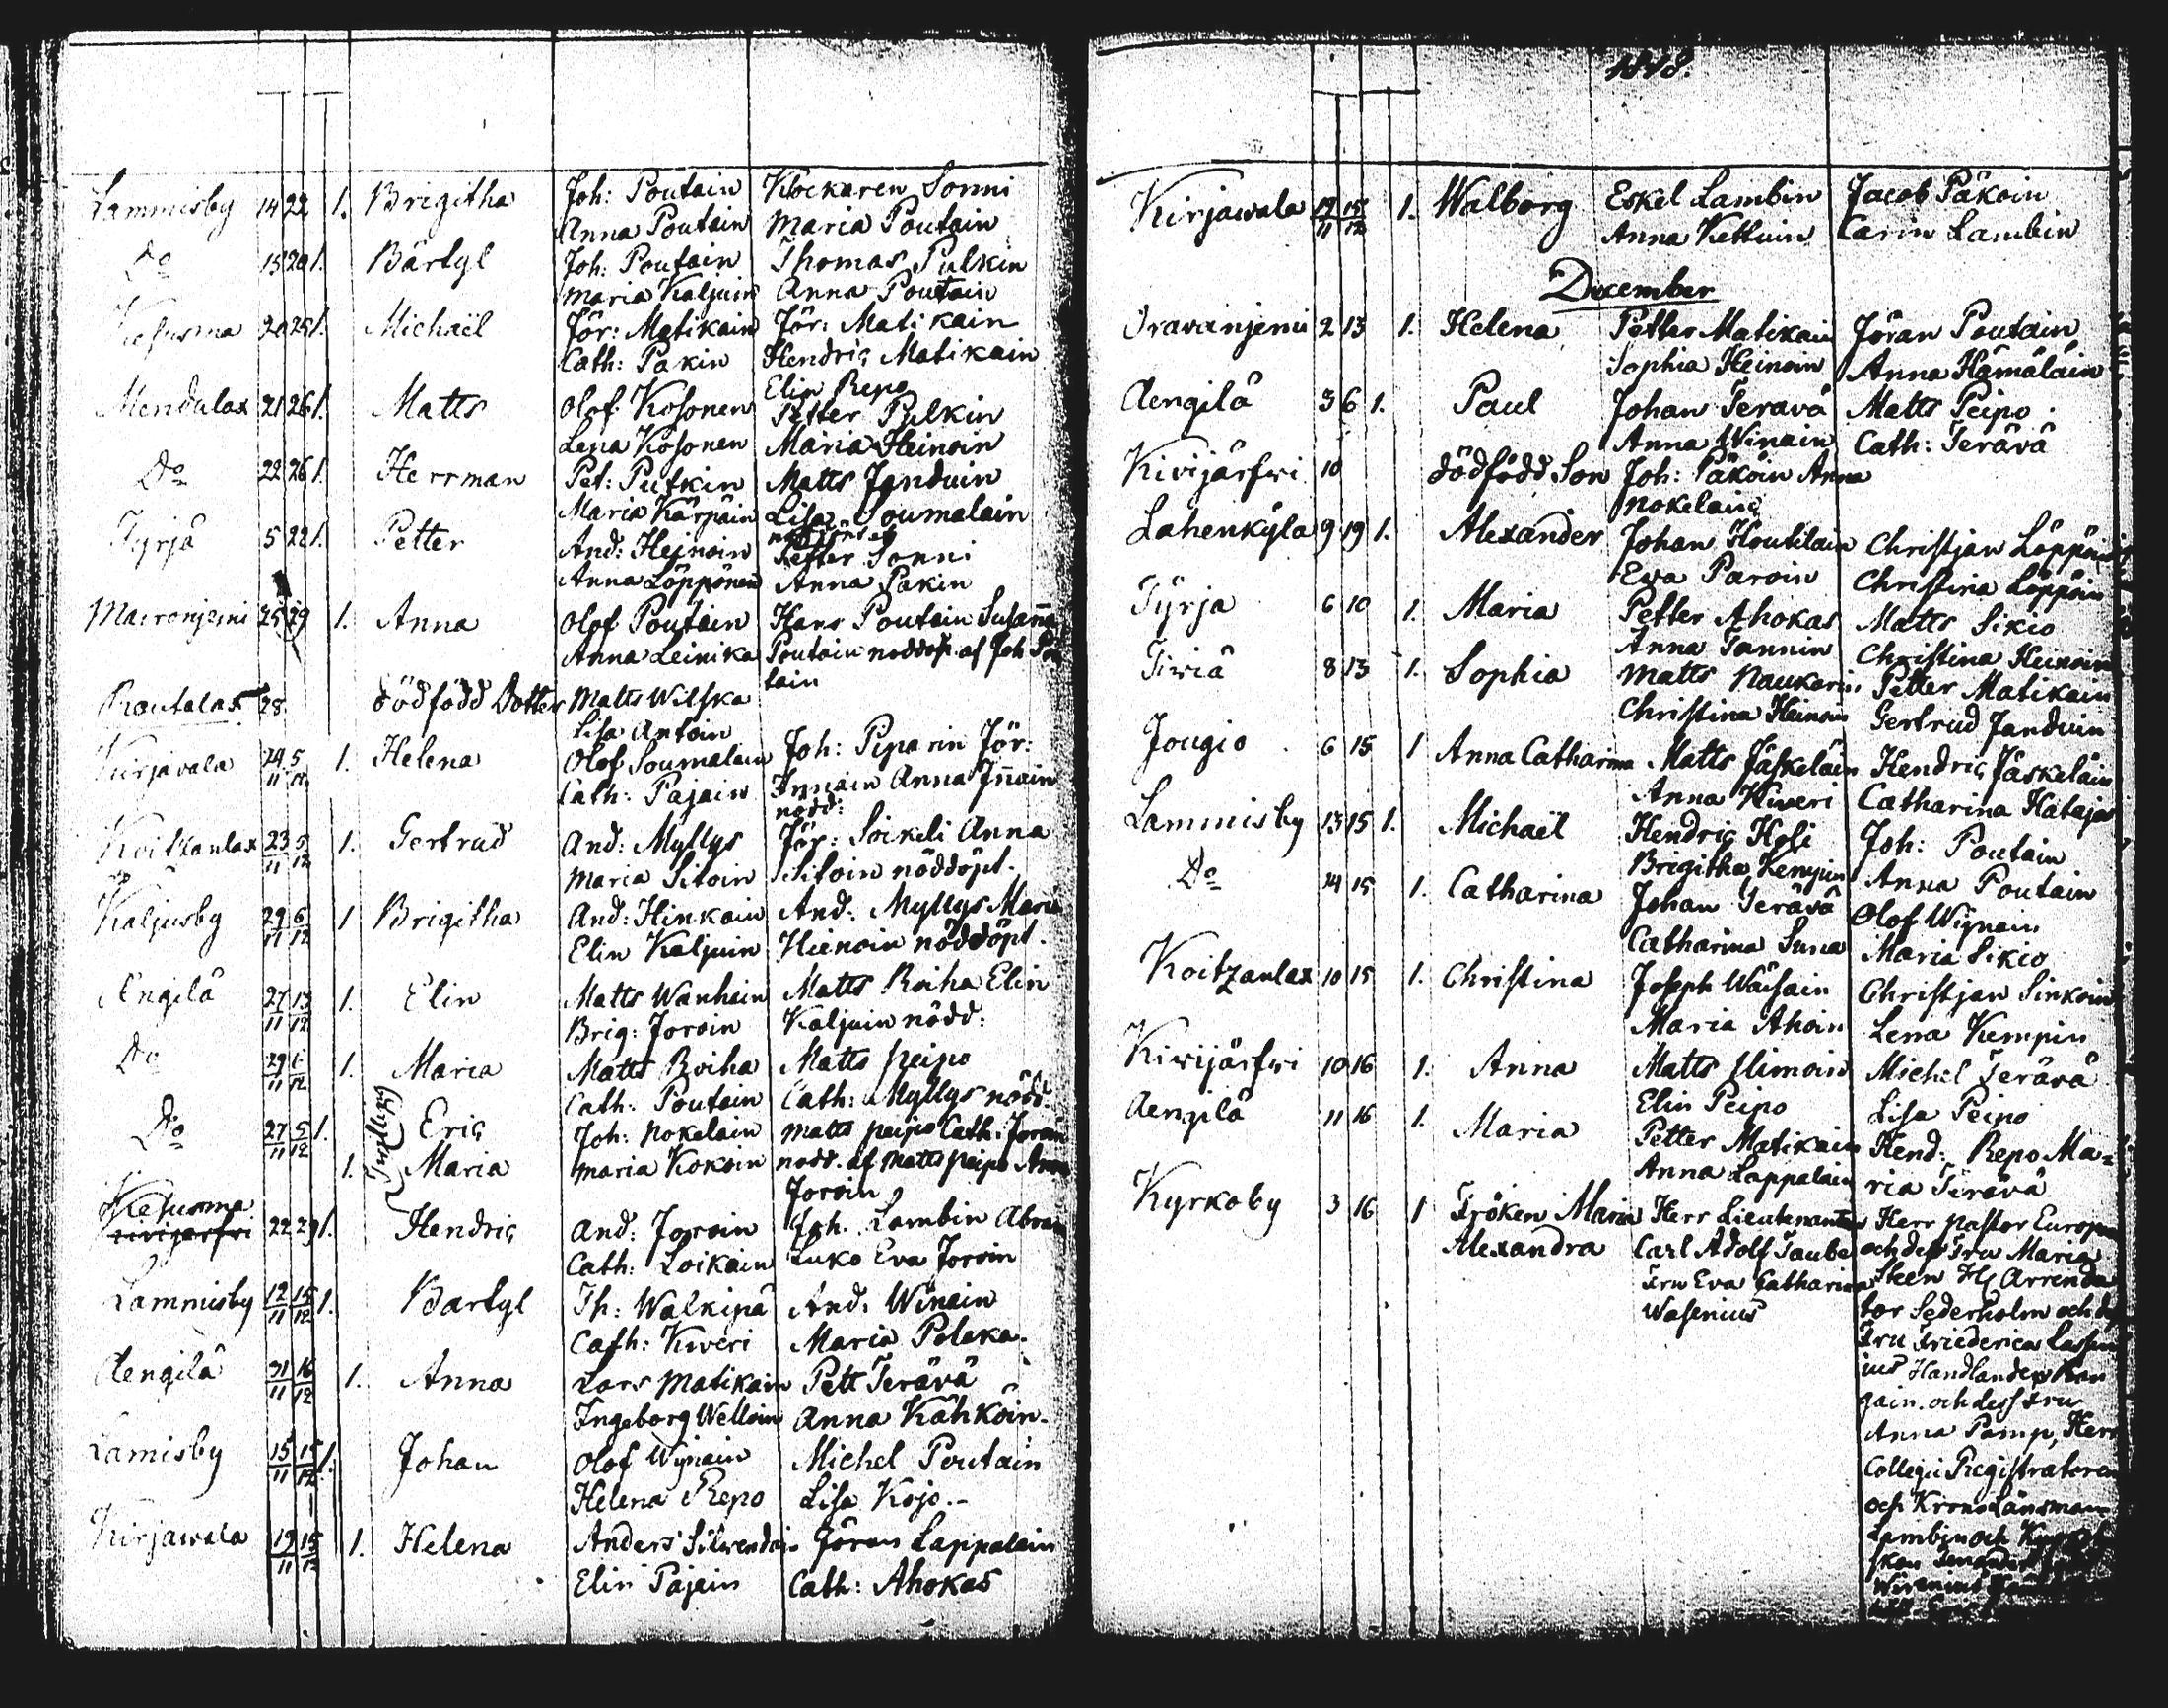 Lammisby 14 22 1. Brigitha Joh: Poutain Klockaren Sonni
Anna Poutain Maria Poutain
Do 15 20 1. Bärtyl Joh: Poutain Thomas Pulkin
Maria Kaljuin Anna Poutain
20 25 1. Michaël Jör: Matikain Jör: Matikain
Cath: Pakin Hendric Matikain
Elin Repo
Mendulax 21 26 1. Matts Olof Kosonen Petter Pulkin
Lena Kosonen Maria Heinoin
Do 22 26 1. Herrman Pet: Putkin Matts Janduin
Maria Kärpäin Lisa Soumalain
Tyrjä 5 22 1. Petter And: Heinoin Petter Sonni
Anna Löppönen Anna Pakin
25 29 1. Anna Olof Poutain Hans Poutain Susanna
Anna Leinika Poutain nöddöpt. af Joh Pou
tain
Rautalax 28. dödfödd Dotter Matts Wilska
Lisa Antoin
Kirjavala 24/11 5/12 1. Helena Olof Soumalain Joh: Piparin Jör:
Cath: Pajain Innain Anna Iñain
nödd:
Koitzanlax 23/11 5/12 1. Gertrud And: Myllys Jör: Soikeli Anna
Maria Sitoin Sitoin nöddöpt.
Kaljusby 29/11 6/12 1 Brigitha And: Hinkain And: Myllys Maria
Elin Kaljuin Hienoin nöddöpt.
Ängilä 27/11 13/12 1. Elin Matts Wanhain Matts Roiha Elin
Brig: Joroin Kaljuin nödd:
Do 29/11 6/12 1. Maria Matts Roiha Matts Peipo
Cath: Poutain Cath: Myllys nödd:
Do 27/11 5/12 1. Tvillingar Eric Joh: Nokelain Matts Peipo Cath: Joroin
1. Maria Maria Kokoin nödd. af Matts Peipo Anna
Joroin
Kesusma
Kivijärfvi 22 29 1. Hendric And: Joroin Joh. Lambin Abram
Cath: Loikain Luko Eva Joroin
Lammisby 12/11 15/12 1. Bartyl Th: Walkipä And: Winain
Cath: Kiveri Maria Polaka.
Aengilä 31/11 16/12 1. Anna Lars Matikain Pett Terävä
Ingeborg Welloin Anna Kähköin.
Lamisby 15/11 15/12 1. Johan Olof Wijnain Michel Poutain
Helena Repo Lisa Kojo.-
Kirjawala 19/11 15/12 1. Helena Anders Silvendoin Jöran Lappalain
Elin Pajain Cath: Ahokas
1818.
Kirjawala 19/11 15/12 1. Walborg Eskel Lambin Jacob Päkoin
Anna Kettuin Carin Lambin
December
Oravanjemi 2 13 1. Helena Petter Matikain Jöran Poutain
Sophia Heinoin Anna Hämäläin
Aengilä 3 6 1. Paul Johan Terävä Matts Peipo
Anna Winain Cath: Terävä
Kivijärfvi 10 dödfödd Son Joh: Päköin Anna
Nokelain
Lahenkyla 9 19 1. Alexander Johan Houtilain Christjan Löppöin
Eva Paroin Christina Löppöin
Tyrja 6 10 1. Maria Petter Ahokas Matts Sikio
Anna Tannin Christina Heinoin
Tiviä 8 13 1. Sophia Matts Naukarin Petter Matikain
Christina Heinoin Gertrud Janduin
Jougio 6 15 1 Anna Catharina Matts Jäskeläin Hendric Jäskeläin
Anna Kiveri Catharina Hataja
Lammisby 13 15 1. Michaël Hendric Holi Joh: Poutain
Brigitha Kempin Anna Poutain
Do 14 15 1. Catharina Johan Terävä Olof Wijnain
Catharina Suna Maria Sikio
Koitzanlax 10 15 1. Christina Joseph Wäisain Christjan Sinkoin
Maria Ahoin Lena Kempin
Kivijärfvi 10 16 1. Anna Matts Ilimoin Michel Terävä
Elin Peipo Lisa Peipo
Aengilä 11 16 1. Maria Petter Matikain Hend: Repo Ma=
Anna Lappalain ria Terävä
Kyrkoby 3 16 1 Fröken Maria Herr Lieutenanten Herr Pastor Europæus
Alexandra Carl Adolf Taube och dess Fru Maria
Fru Eva Catharina Steen Hr Arrenda
Wasenius tor Sederholm och dess
Fru Friederica Lassen
ius Handlanden
gain. och dess Fru
Anna Pamp, Herr
Collegii Registratoren
och Krono Länsman
Lambin och